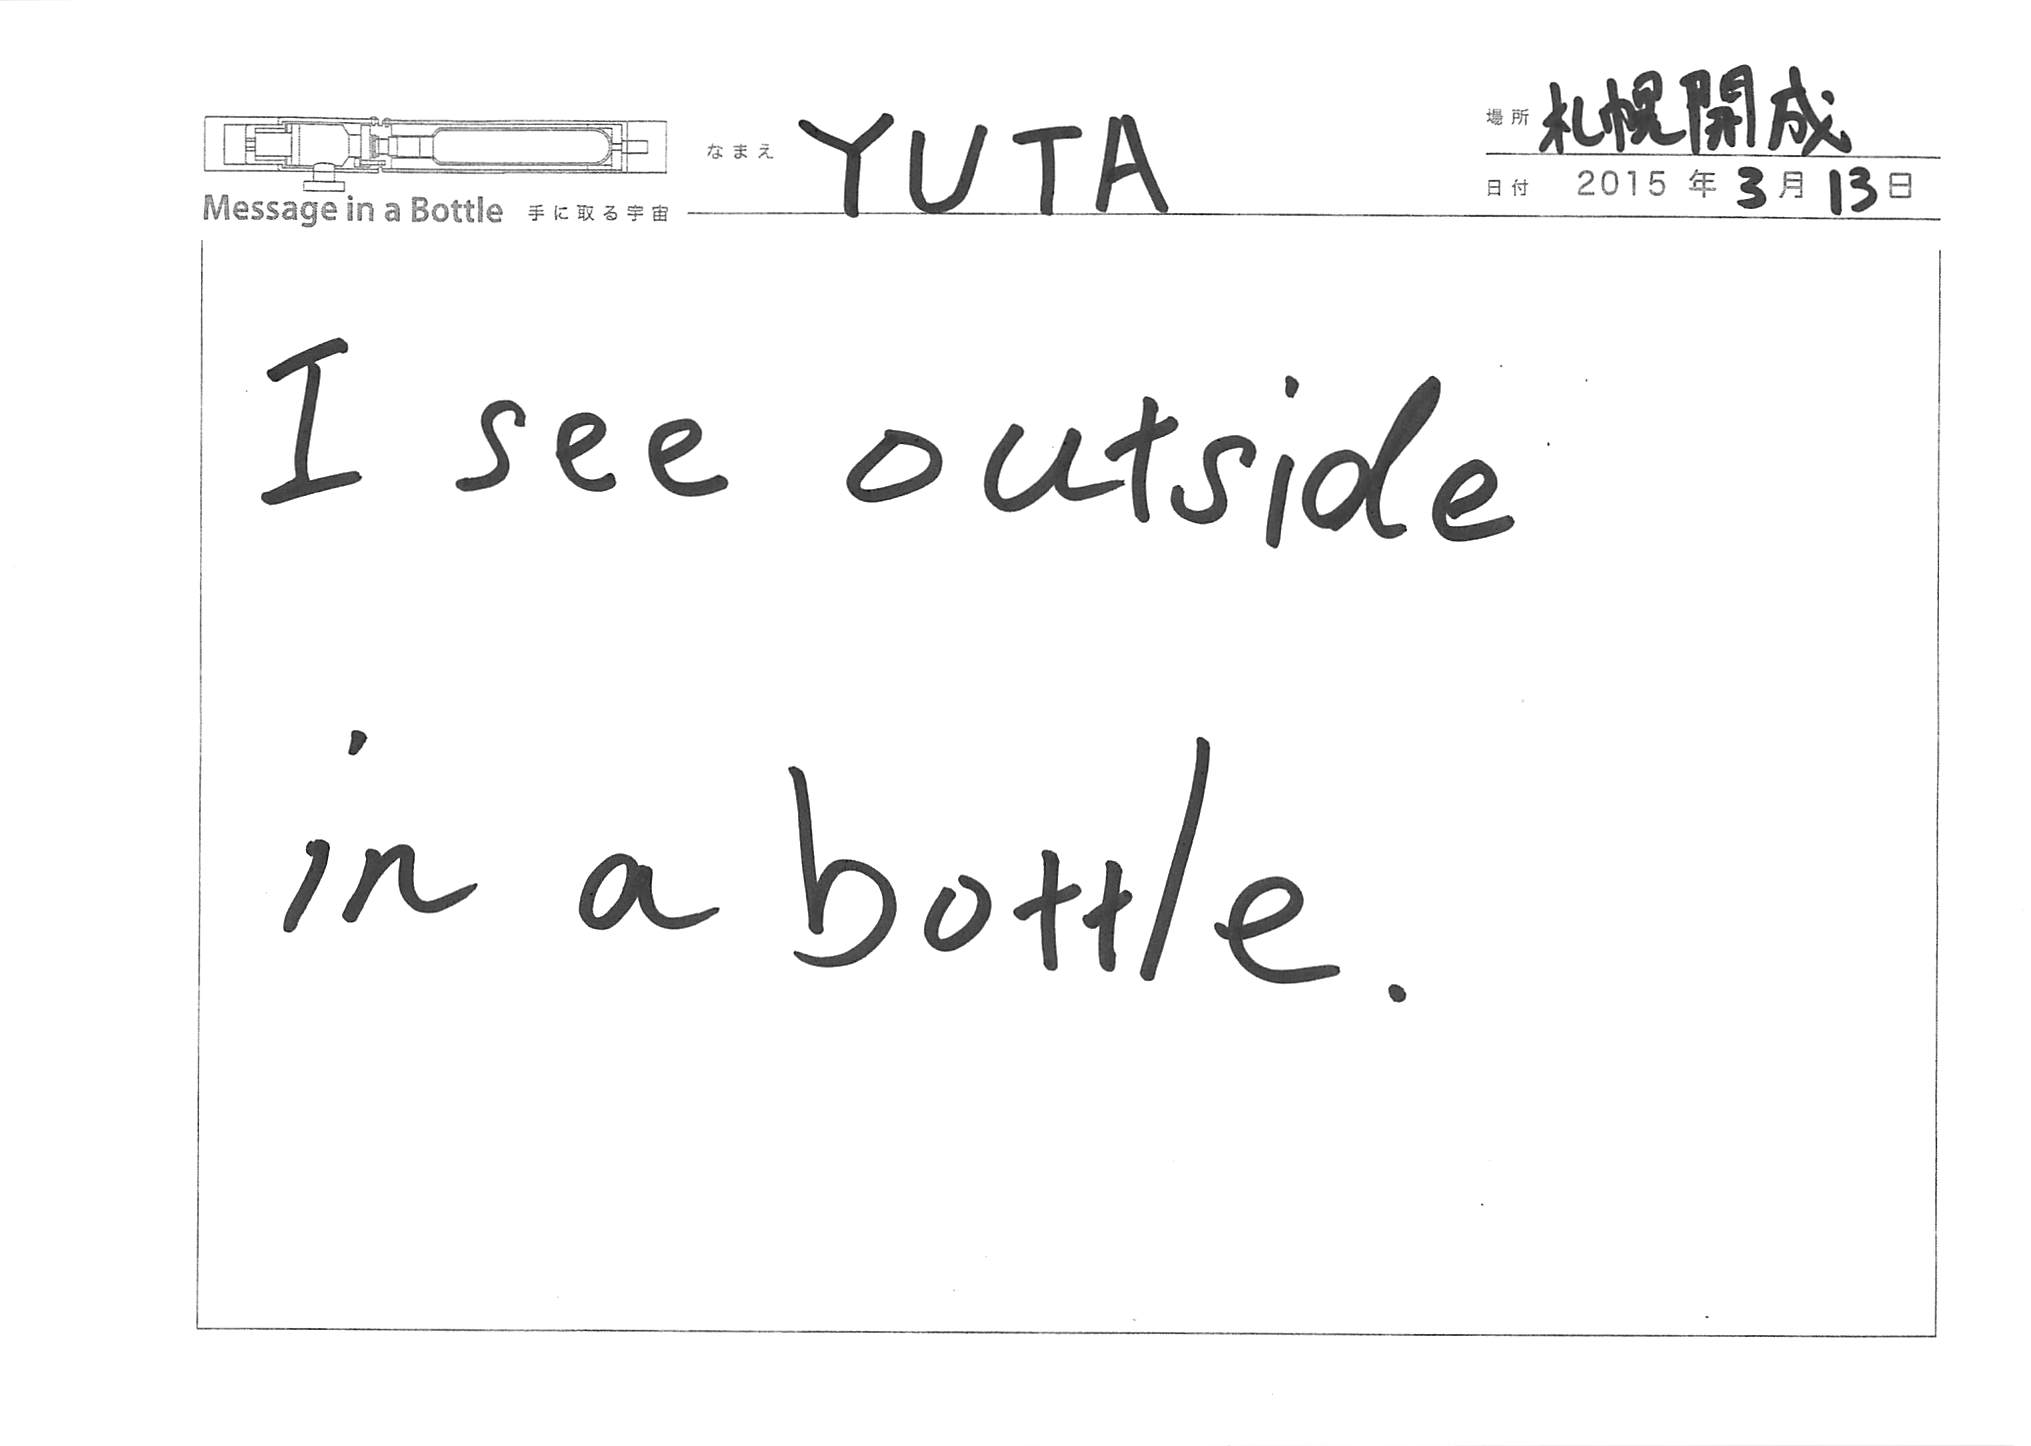 なまえ YUTA
場所 札幌開成
Message in a Bottle 手に取る宇宙
日付 2015 年 3 月 13 日
I see outside
in a bottle.